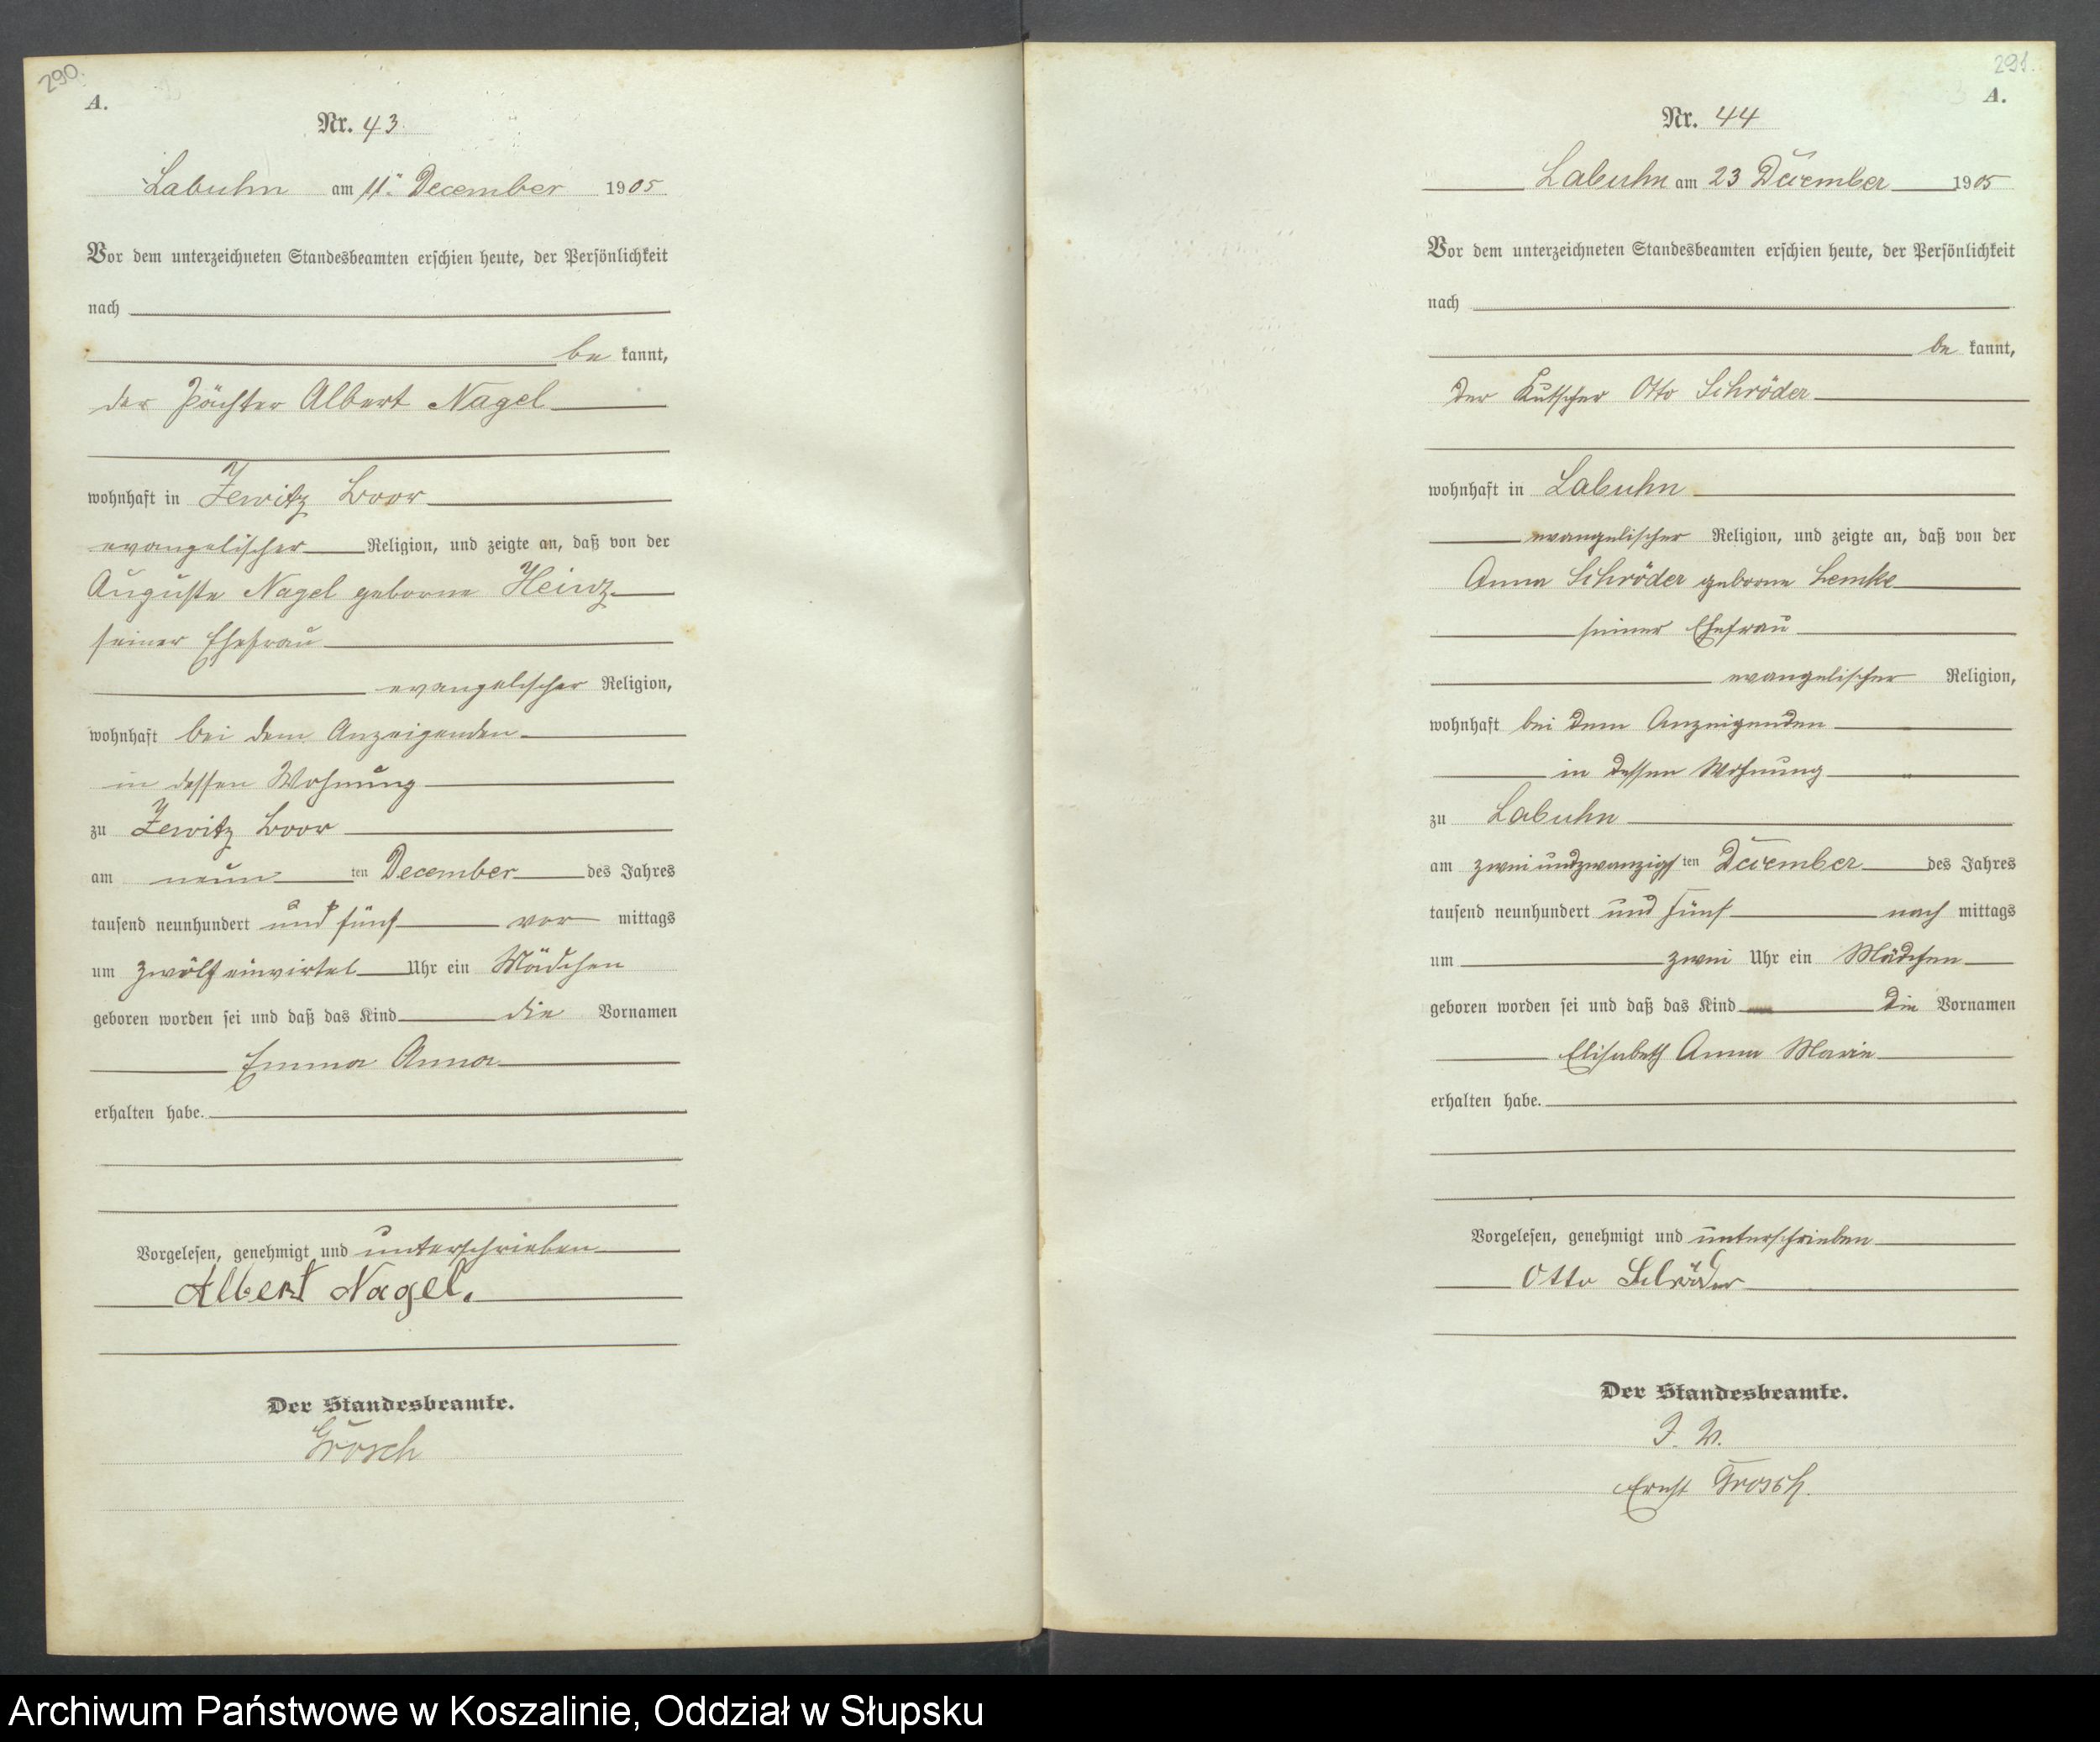 290.
A.
Nr. 43.
Labuhn am 11. December 1905
Vor dem unterzeichneten Standesbeamten erschien heute, der Persönlichkeit
nach
be kannt,
der Pächter Albert Nagel
wohnhaft in Zewitz
evangelischer Religion, und zeigte an, daß von der
Auguste Nagel geborne Heinz
seiner Ehefrau
evangelischer Religion,
wohnhaft bei dem Anzeigenden
in dessen Wohnung
zu Zewitz
am neun ten December des Jahres
tausend neunhundert und fünf vor mittags
um zwölf einvirtel Uhr ein Mädchen
geboren worden sei und daß das Kind die Vornamen
Emma Anna
erhalten habe.
Vorgelesen, genehmigt und unterschrieben
Albert Nagel.
Der Standesbeamte.
Grosch
291.
A.
Nr. 44
Labuhn am 23 December 1905
Vor dem unterzeichneten Standesbeamten erschien heute, der Persönlichkeit
nach
be kannt,
der Kutscher Otto Schröder
wohnhaft in Labuhn
evangelischer Religion, und zeigte an, daß von der
Anna Schröder geborne Lemke
seiner Ehefrau
evangelischer Religion,
wohnhaft bei dem Anzeigenden
in dessen Wohnung
zu Labuhn
am zweiundzwanzigs ten December des Jahres
tausend neunhundert und fünf nach mittags
um zwei Uhr ein Mädchen
geboren worden sei und daß das Kind die Vornamen
Elisabeth Anna Marie
erhalten habe.
Vorgelesen, genehmigt und unterschrieben
Otto Schröder
Der Standesbeamte.
J. V.
Ernst Grosch.
Archiwum Państwowe w Koszalinie, Oddział w Słupsku